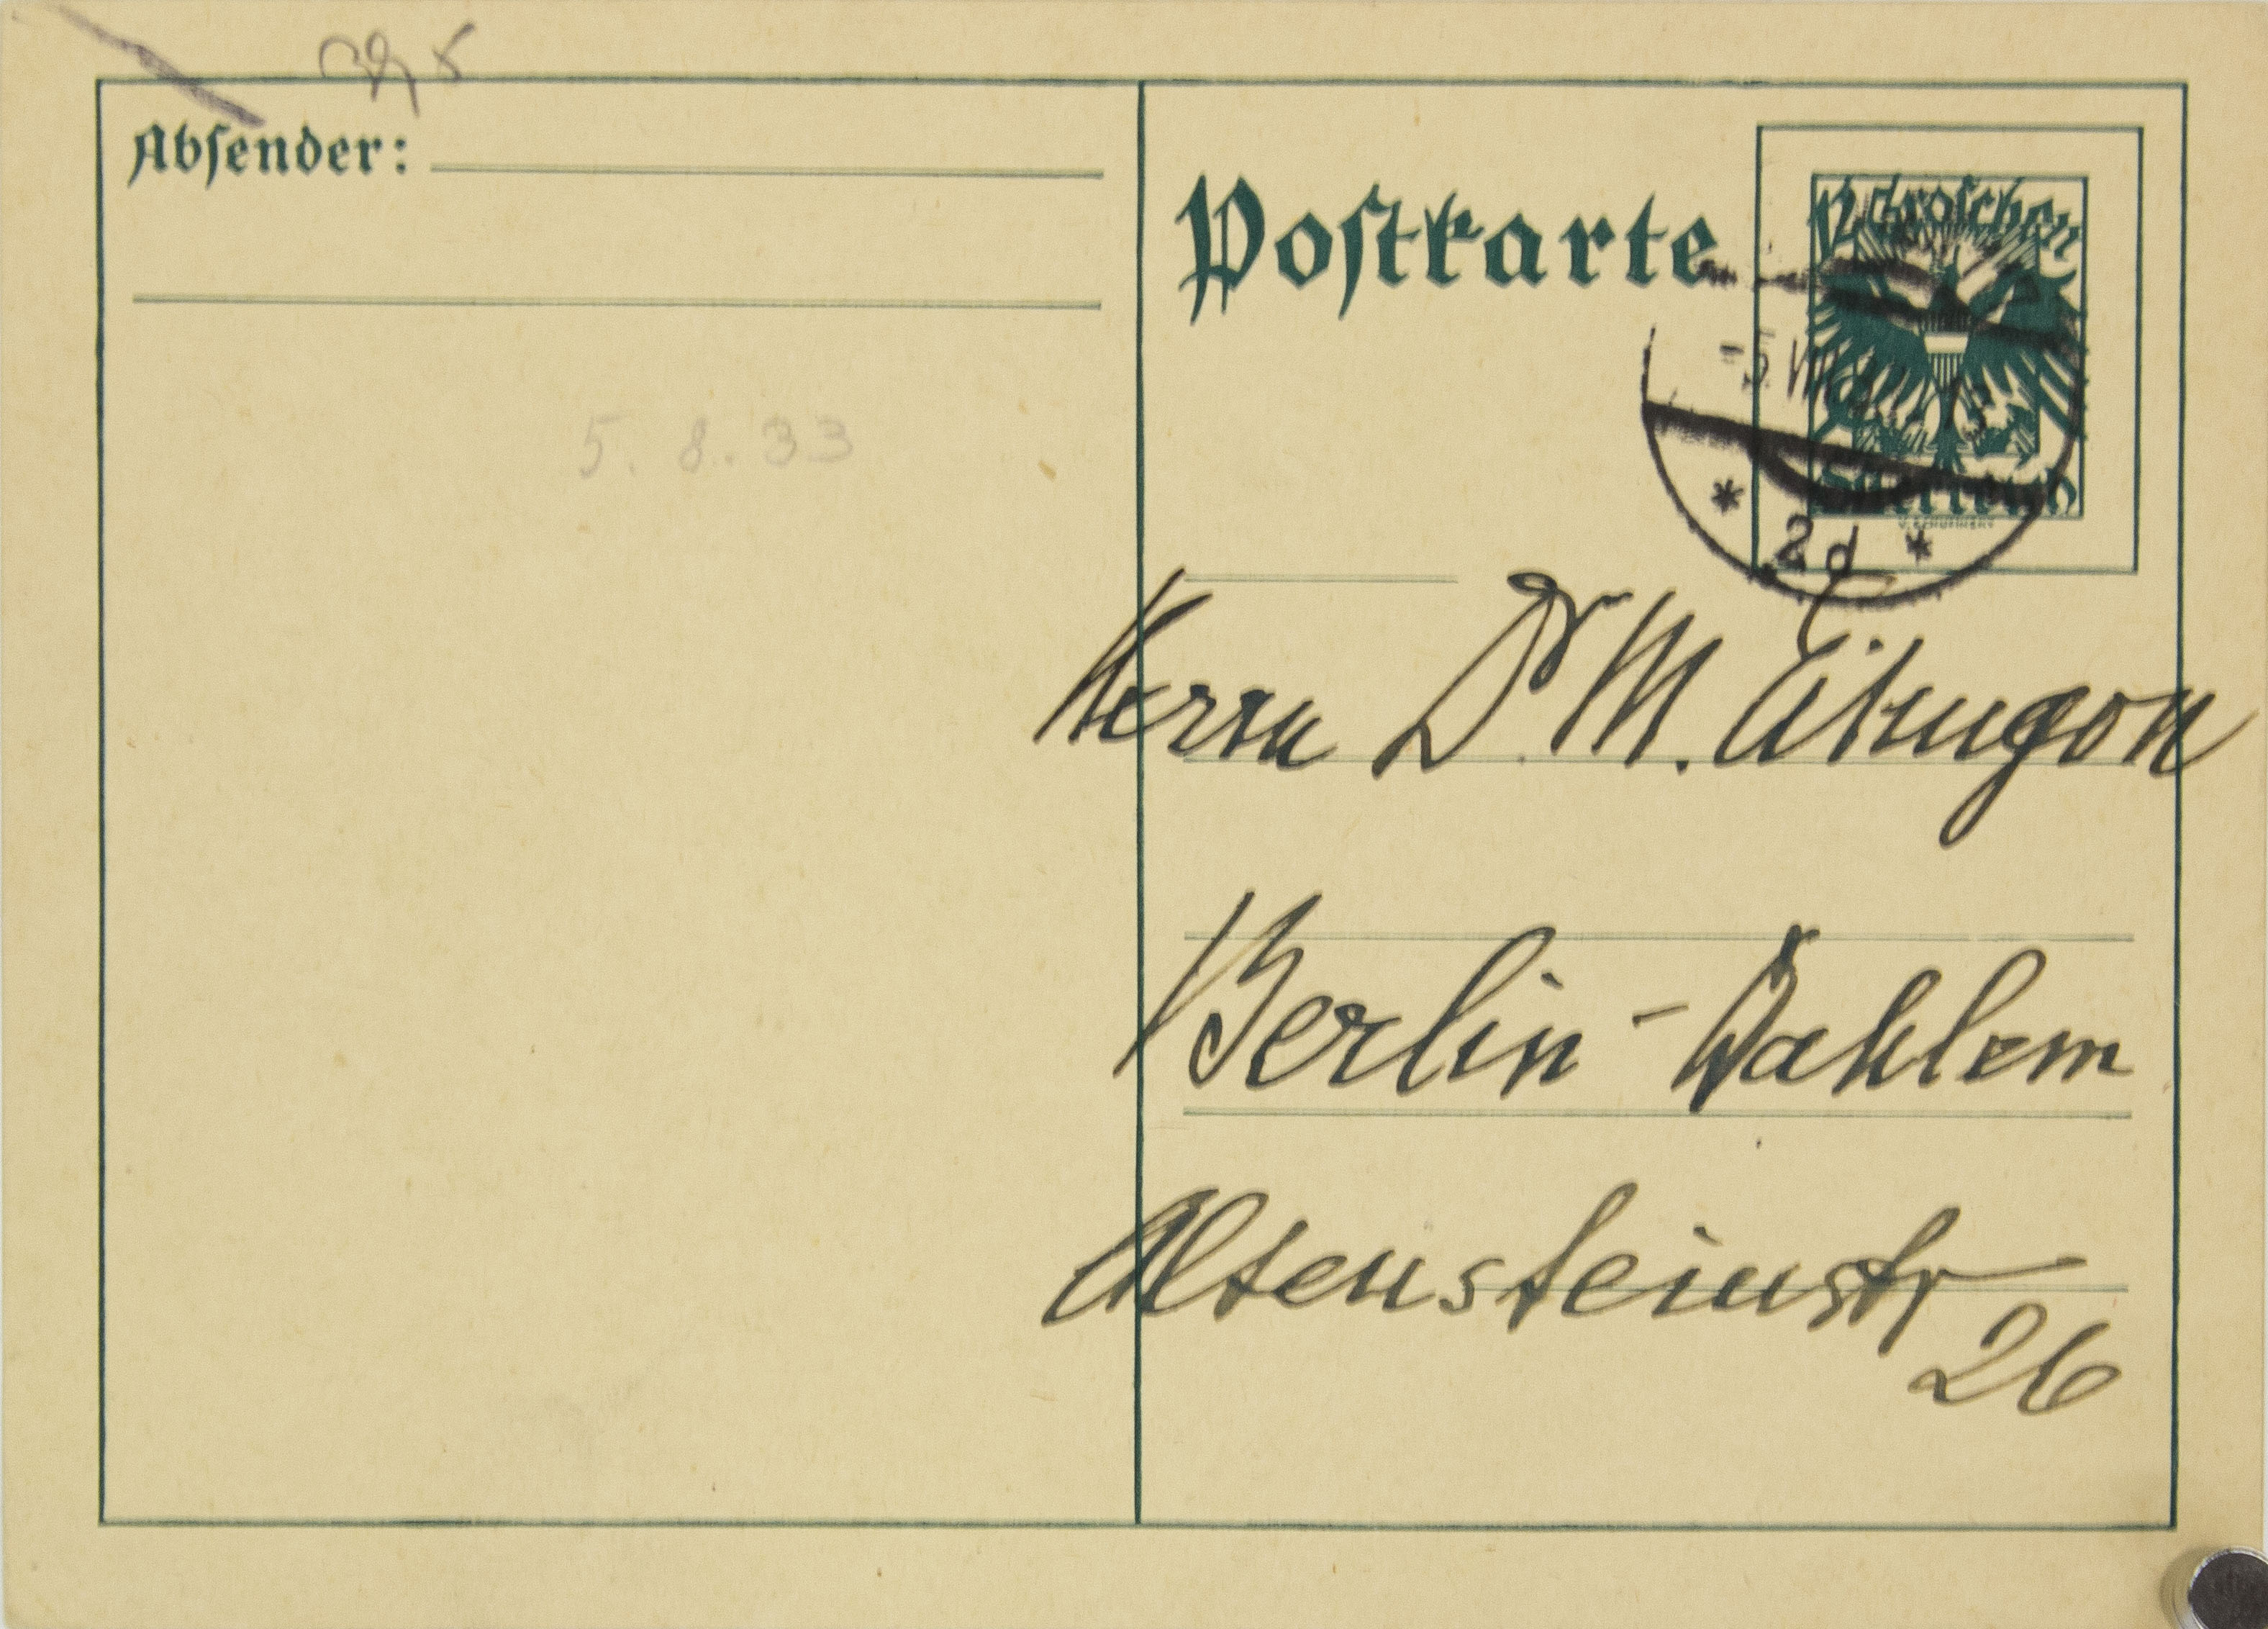 Absender:
Postkarte
Groschen
Österreich
5. 8. 33
2d
Herrn Dr. M. Eitingon
Berlin - Dahlem
Altensteinstr
26